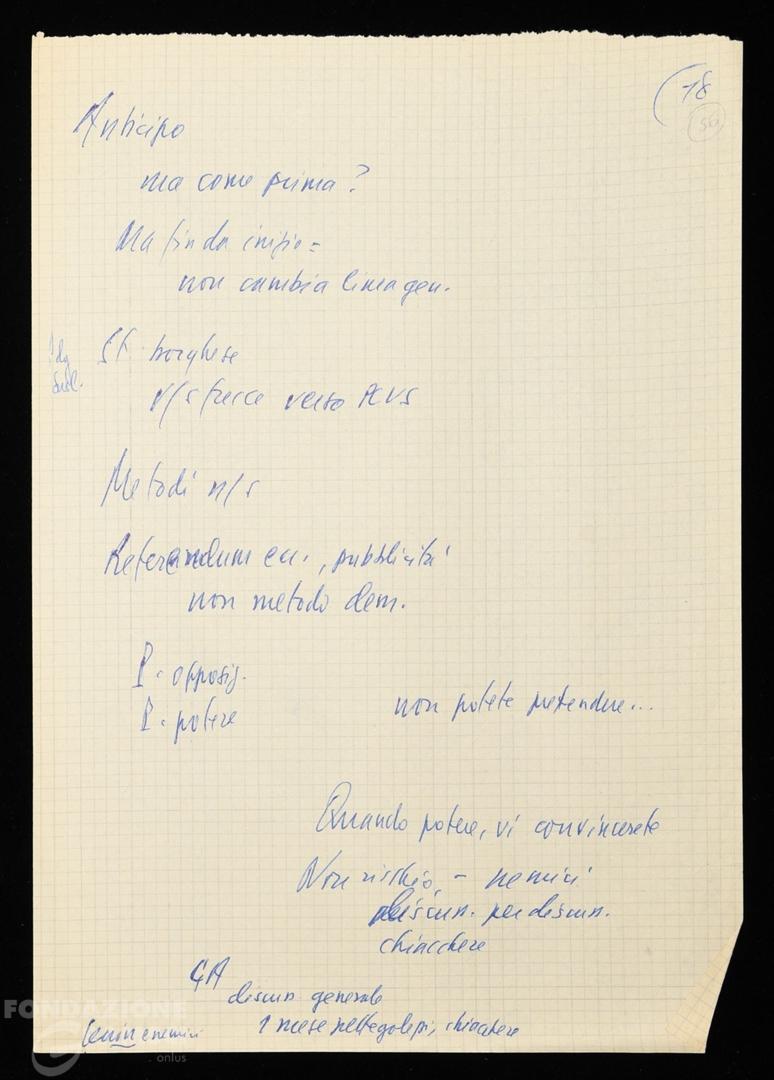 (18
56
Anticipo
ma come prima?
Ma fin da inizio =
non cambia linea gen.
St. borghese
n/s frecce verso
Metodi n/s
Referendum ecc., pubblicità
non metodo dem.
P. opposiz.
P. potere
non potete pretendere...
Quando potere, vi convincerete
Non rischio, - nemici
discus. per discus.
chiacchere
GA
discus generale
FONDAZIONE
1 mese pettegolezzi, chiacchere
Lenin e nemici
onlus